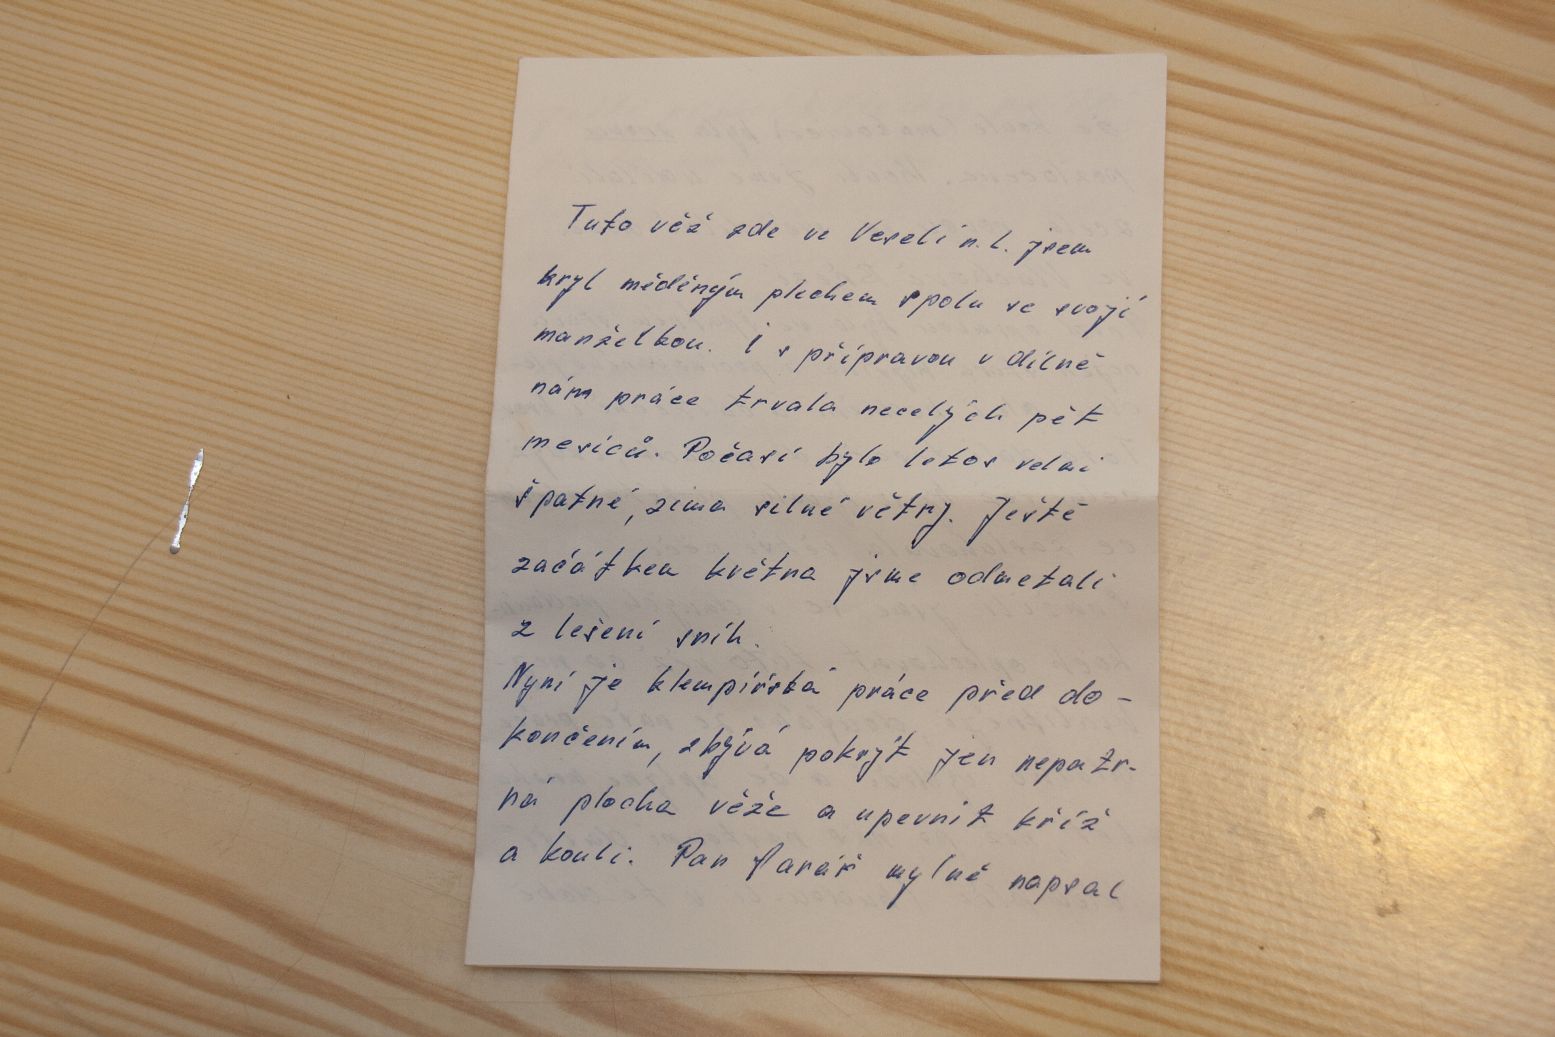 Tuto věž zde ve Veselí n. L. jsem
kryl měděným plechem spolu se svojí
manželkou. I s přípravou v dílně
nám práce trvala necelých pět
mesíců. Počasí bylo letos velmi
špatné, zima silné větry. Ještě
začátkem května jsme odmetali
z lešení sníh.
Nyní je klempířská práce před do-
končením, zbývá pokrýt jen nepatr-
ná plocha věže a upevnit kříž
a kouli. Pan farář mylně napsal